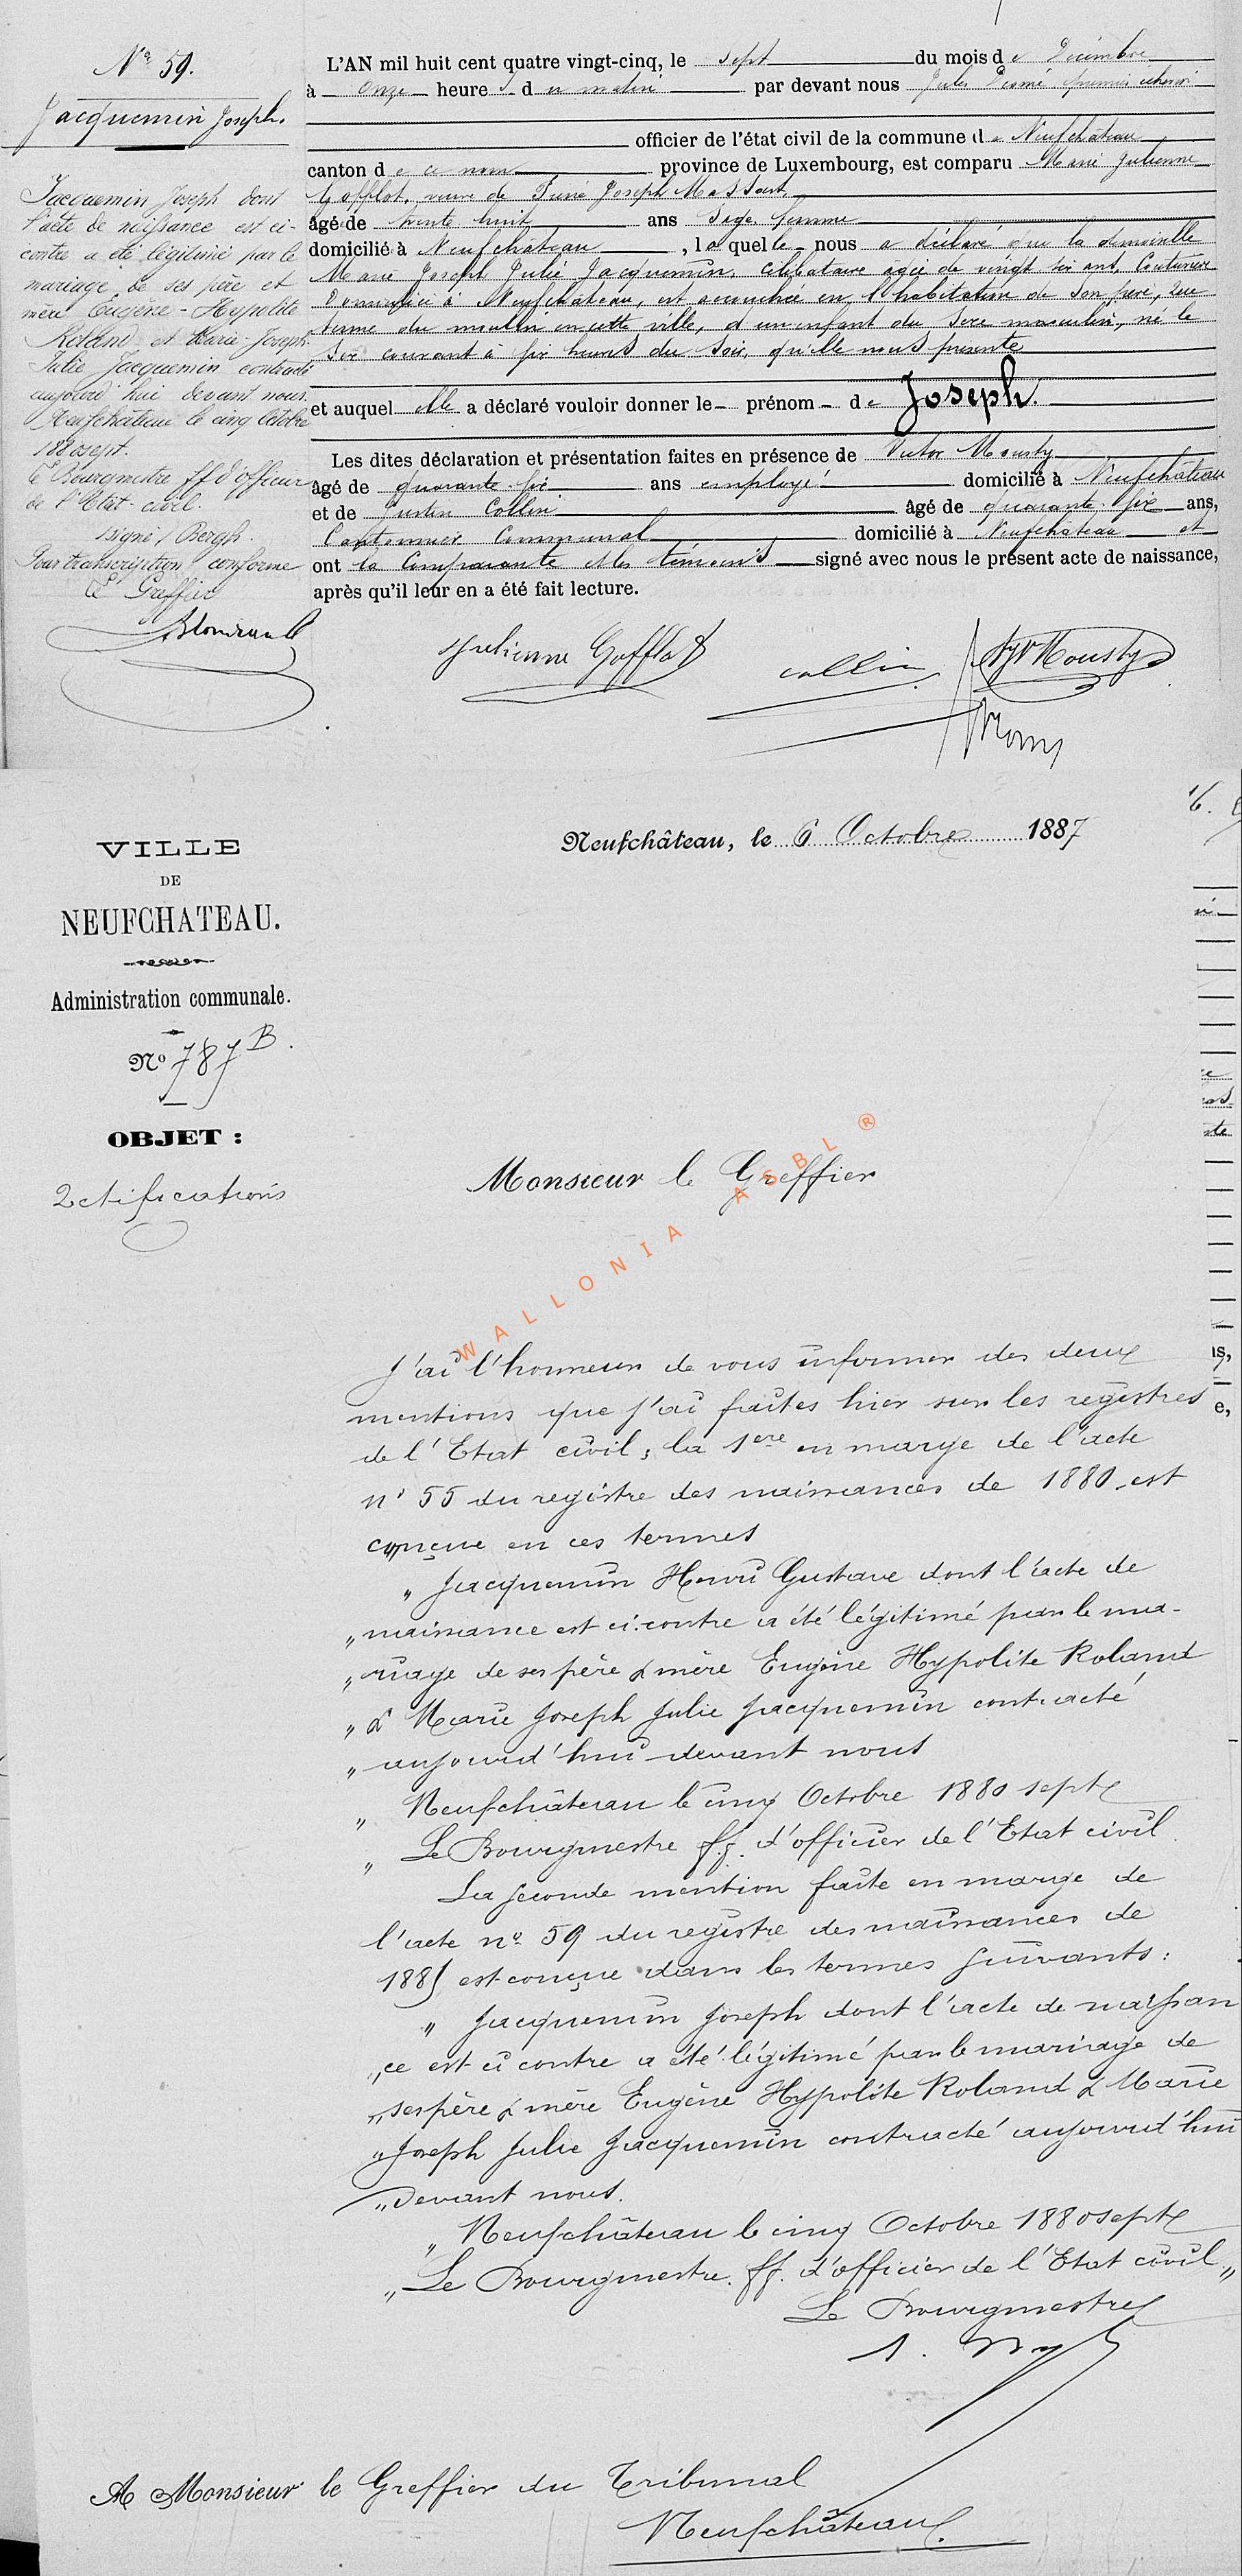 Nº 59.
Jacquemin Joseph.
Jacquemin Joseph dont
l'acte de naissance est ci-
contre a été légitimé par le
mariage de ses père et
mère Eugène-Hypolite
Roland et Marie-Joseph-
Julie Jacquemin contracté
aujourd'hui devant nous.
Neufchâteau le cinq Octobre
1880sept.
Le Bourgmestre ff d'officier
de l'Etat-civil.
signé/ Bergh.
Pour transcription conforme
Le Greffier
L'AN mil huit cent quatre vingt-cinq, le sept du mois de Décembre
à onze heures du matin par devant nous Jules premier échevin
officier de l'état civil de la commune de Neufchâteau
canton de ce nom province de Luxembourg, est comparu Marie Julienne
Gofflot, veuve de Joseph Massart
âgé de trente huit ans Sage femme
domicilié à Neufchateau, laquelle nous a déclaré que la demoiselle
Marie Joseph Julie Jacquemin, célibataire agée de vingt six ans, Couturière
domiciliée à Neufchâteau, est accouchée en l'habitation de son père, rue
terme du moulin en cette ville, d'un enfant du sexe masculin, né le
six courant à six heures du soir, qu'elle nous présente
et auquel elle a déclaré vouloir donner le prénom de Joseph.
Les dites déclaration et présentation faites en présence de Victor Mousty
âgé de quarante six ans employé domicilié à Neufchâteau
et de Justin Collin âgé de quarante six ans,
Cantonnier Communal domicilié à Neufchâteau et
ont la Comparante et les témoins signé avec nous le présent acte de naissance,
après qu'il leur en a été fait lecture.
Julienne Gofflot
collin
Mousty
VILLE
DE
NEUFCHATEAU.
Administration communale.
Nº 787 B.
OBJET :
Neufchâteau, le 6 Octobre 1887
Monsieur le Greffier
WALLONIA ASBL ®
J'ai l'honneur de vous informer des deux
mentions que j'ai faites hier sur les registres
de l'Etat civil; la 1ere en marge de l'acte
nº 55 du registre des naissances de 1880 est
conçue en ces termes
" Jacquemin Henri Gustave dont l'acte de
" naissance est ci-contre a été légitimé par le ma-
" riage de ses père & mère Eugène Hypolite Roland
" & Marie Joseph Julie Jacquemin contracté
" aujourd'hui devant nous
" Neufchâteau le cinq Octobre 1880 sept
" Le Bourgmestre ff. d'officier de l'Etat civil
La seconde mention faite en marge de
l'acte nº 59 du registre des naissances de
1885 est conçue dans les termes suivants :
" Jacquemin Joseph dont l'acte de naissan
" ce est ci contre a été légitimé par le mariage de
" ses père & mère Eugène Hypolite Roland & Marie
" Joseph Julie Jacquemin contracté aujourd'hui
" devant nous.
" Neufchâteau le cinq Octobre 1880sept
" Le Bourgmestre ff. d'officier de l'Etat civil "
Le Bourgmestre
A Monsieur le Greffier du Tribunal
Neufchâteau.